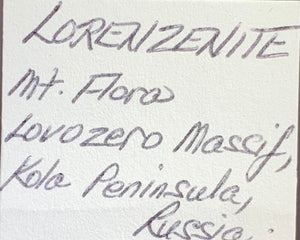 LORENZENITE
Mt. Flora
Lovozero Massif,
Kola Peninsula,
Russia.